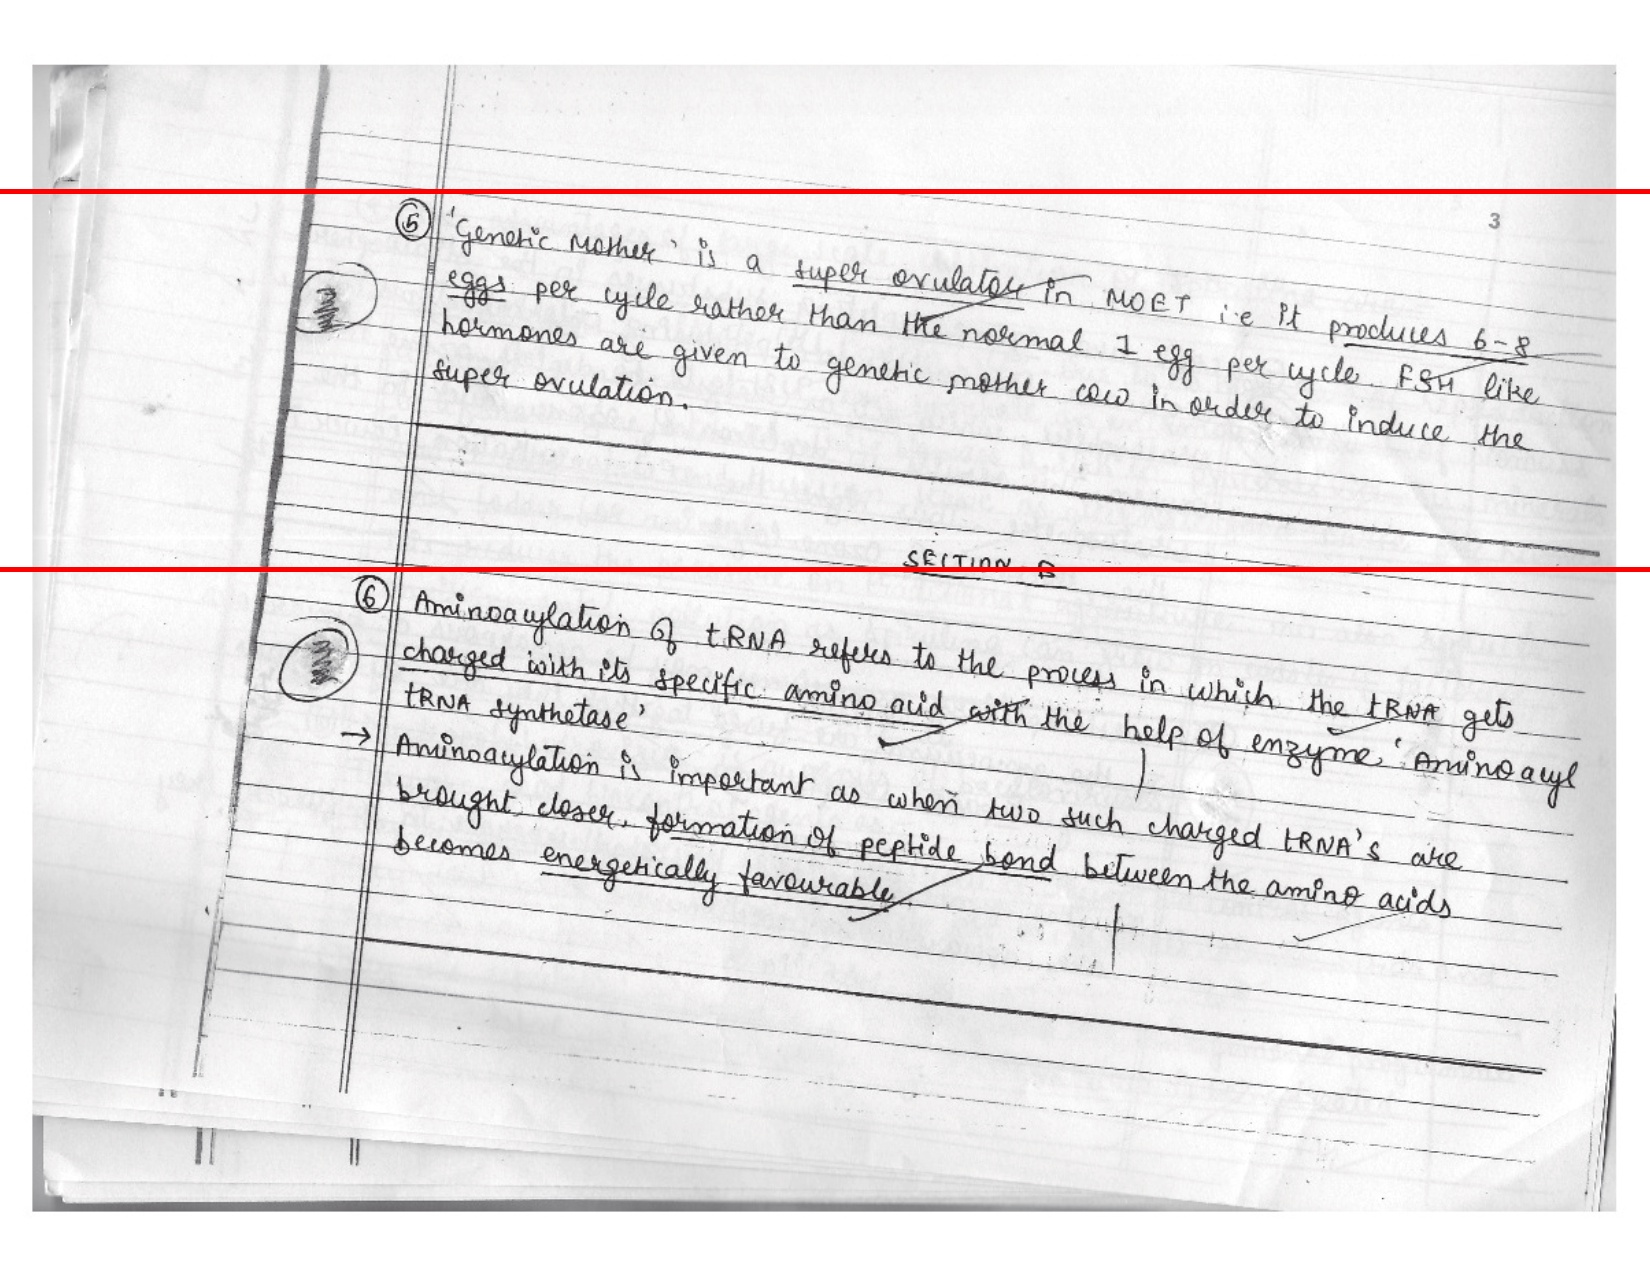 3
5 'Genetic Mother' is a super ovulator in MOET i.e it produces 6-8
eggs per cycle rather than the normal 1 egg per cycle. FSH like
hormones are given to genetic mother cow in order to induce the
super ovulation.
SECTION B
6 Aminoacylation of tRNA refers to the process in which the tRNA gets
charged with its specific amino acid with the help of enzyme 'Amino acyl
tRNA synthetase'
→ Aminoacylation is important as when two such charged tRNA's are
brought closer, formation of peptide bond between the amino acids
becomes energetically favourable.